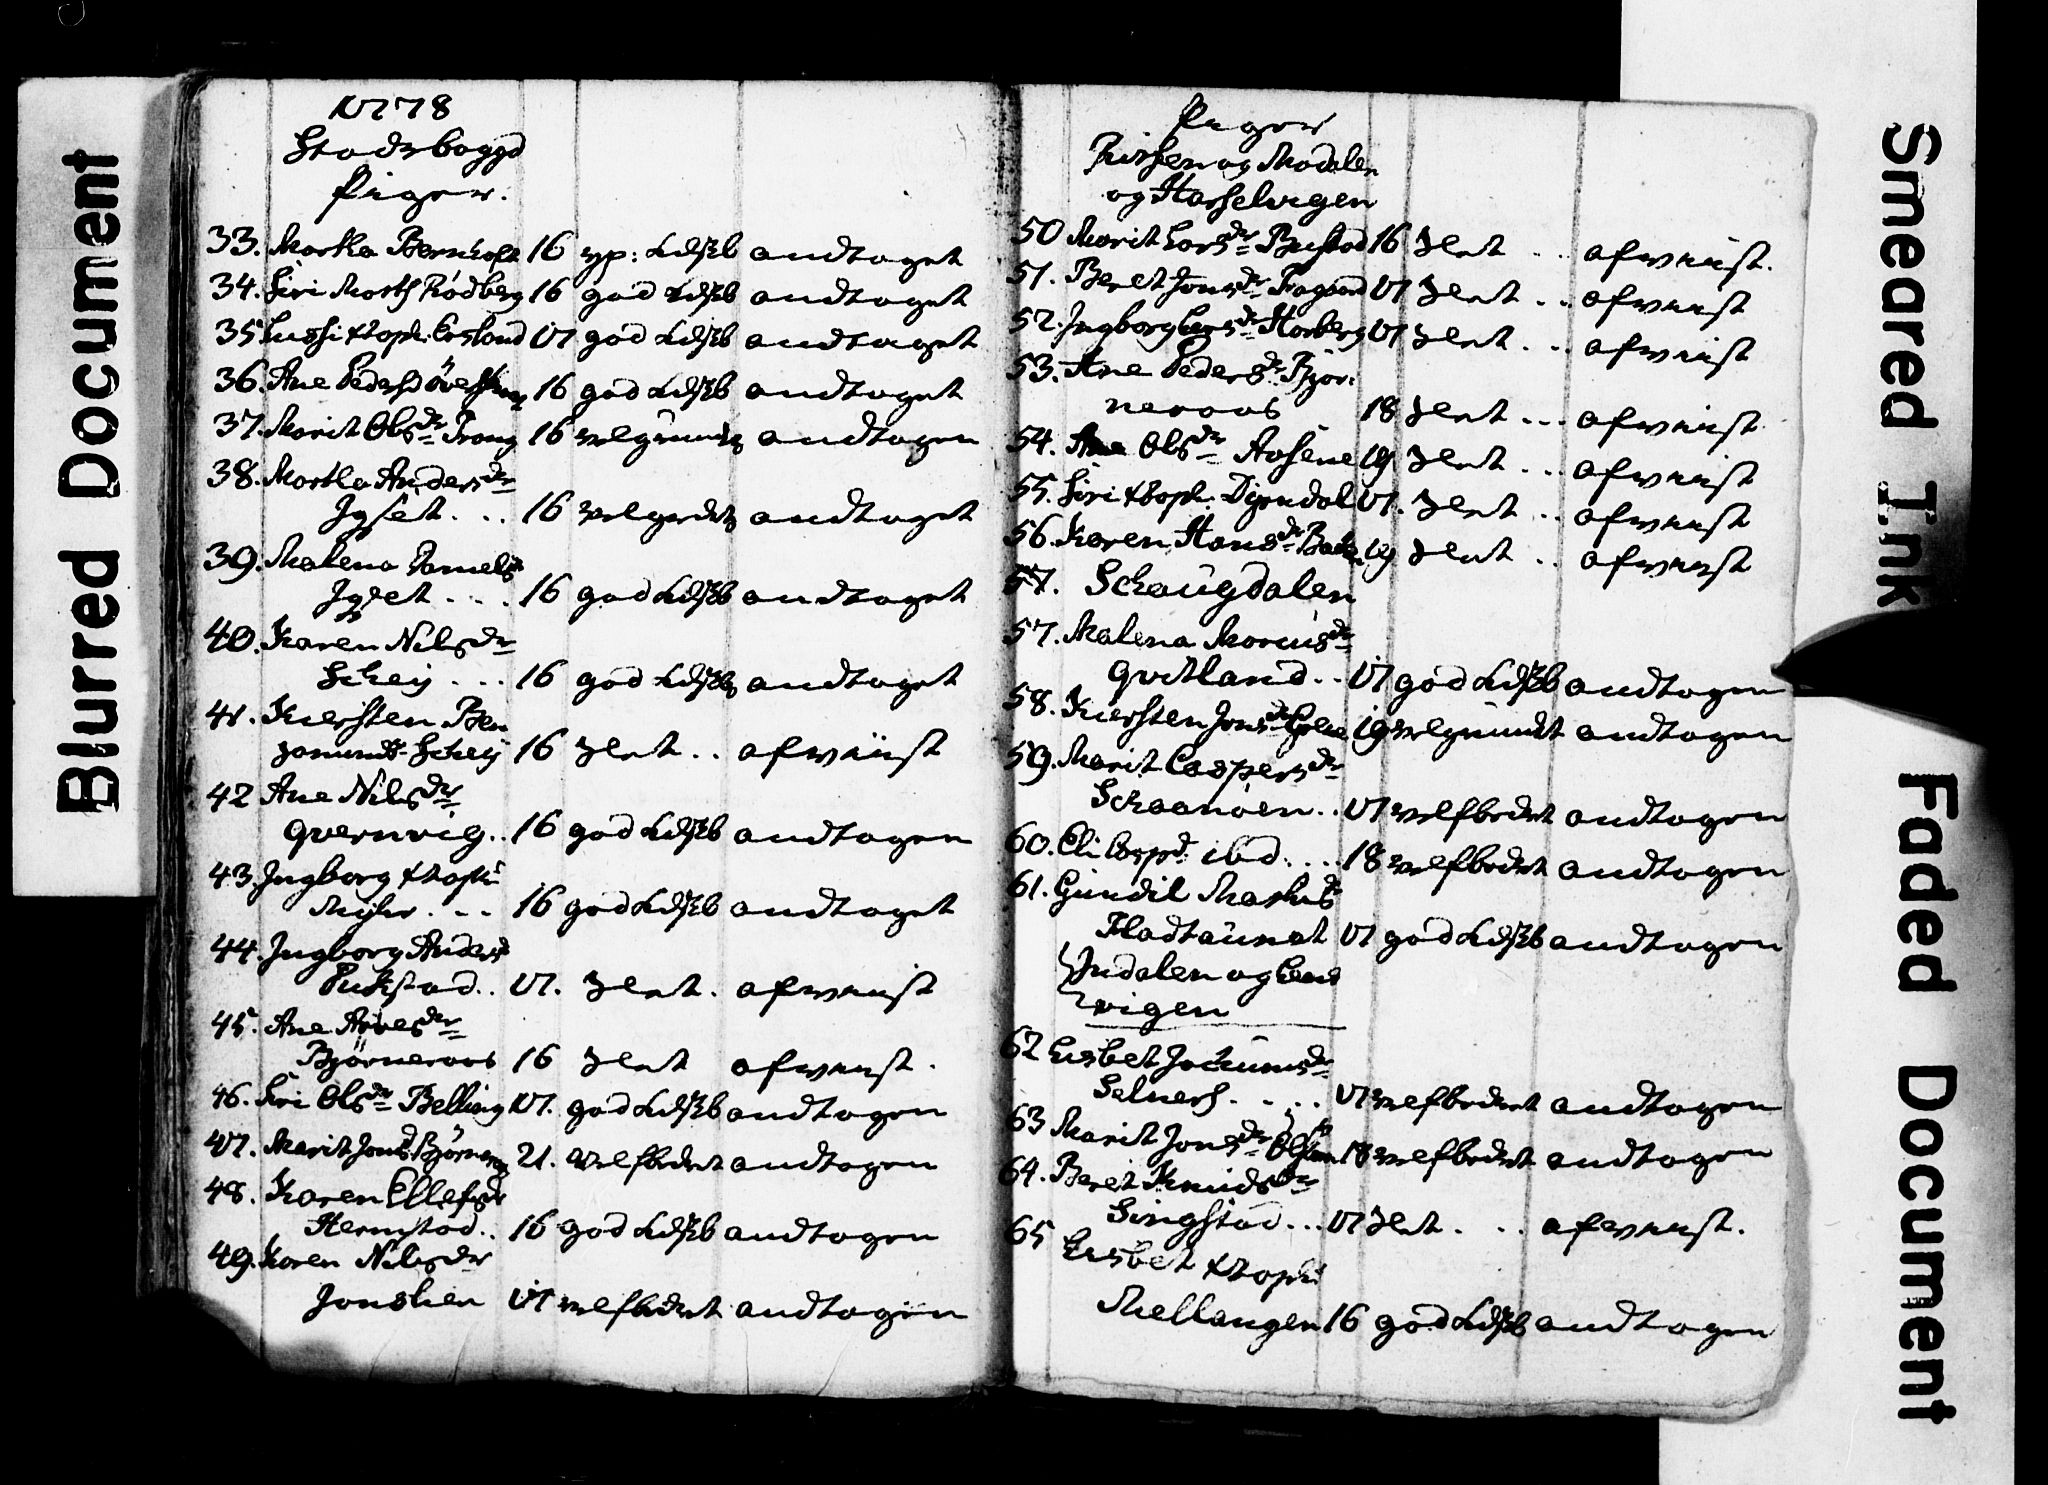 Blurred Document
1778
Stadsbøygd
Piger.
33. Marta Bernhoft 16 god Kdskb andtaget
34. Siri Morth Rödberg 16 god Kdskb andtaget
35 Lussi xtoph: 17 god Kdskb andtaget
36. Ane Pedersd 16 god Kdskb andtaget
37. Marit Olsdr Prang 16 velgrundt andtagen
38. Martha Andersdr
Jgset . . . 16 andtaget
39. Malena Danielsdr
Jgset . . . 16 god Kdskb andtaget
40. Karen Nilsdr
Schey . . . 16 god Kdskb andtaget
41. Kiersten Ben
Schey 16 Slet . . afviist
42 Ane Nilsdr
Qvernvig . . 16 god Kdskb andtagen
43. Ingborg xtoph
Myhr . . . 16 god Kdskb andtaget
44. Ingborg Andersd
Pukstad . . 17. Slet . afviist
45. Ane Arvesdr
Bjørneraas 16 Slet afviist .
46. Siri Olsdr Belling 17. god Kdskb andtagen
47. Marit Jonsd Bjørneraas 21. velfbedret andtagen
48. Karen Ellefsdr
Hermstad . . 16 god Kdskb andtagen
49. Karen Nilsdr
Jonslien 17 velfbedret andtagen
Piger
Rissen og Modalen
og Hasselvigen
50 Marit Larsdr Bustad 16 Slet . . afviist.
51. Beret Jonsdr 17 Slet . . afviist
52. Ingborg Larsdr 17 Slet . . afviist
53. Ane Pedersdr Bjør:
neraas 18 Slet . . . afviist
54. Ane Olsdr 19 Slet . . . afviist
55. Siri xtoph. Dyrndal 17. Slet . . afviist
56. Karen Hansdr 19 Slet . . afviist
57. Schaugdalen
57. Malena Marcusdr
Qvitland . . 17 god Kdskb andtagen
58. Kiersten Jonsdr 19 velgrundt andtagen
59. Marit Caspersdr
Schaanöen . . 17 velfbedret andtagen
60. Eli Caspd. ibd. . . . 18 velfbedret andtagen
61. Gundil
Fladtaunet 17 god Kdskb andtagen
Jndalen og Lens
vigen
62 Lisbet Jochumsdr
Selnes . . . . 17 velfbedret andtagen
63 Marit Jonsdr 18 velfbedret andtagen
64. Beret Knudsdr
Singstad . . . 17 Slet . . . afviist.
65 Lisbet xtoph
Mellangen 16 god Kdskb andtagen
Smeared Ink
Faded Document